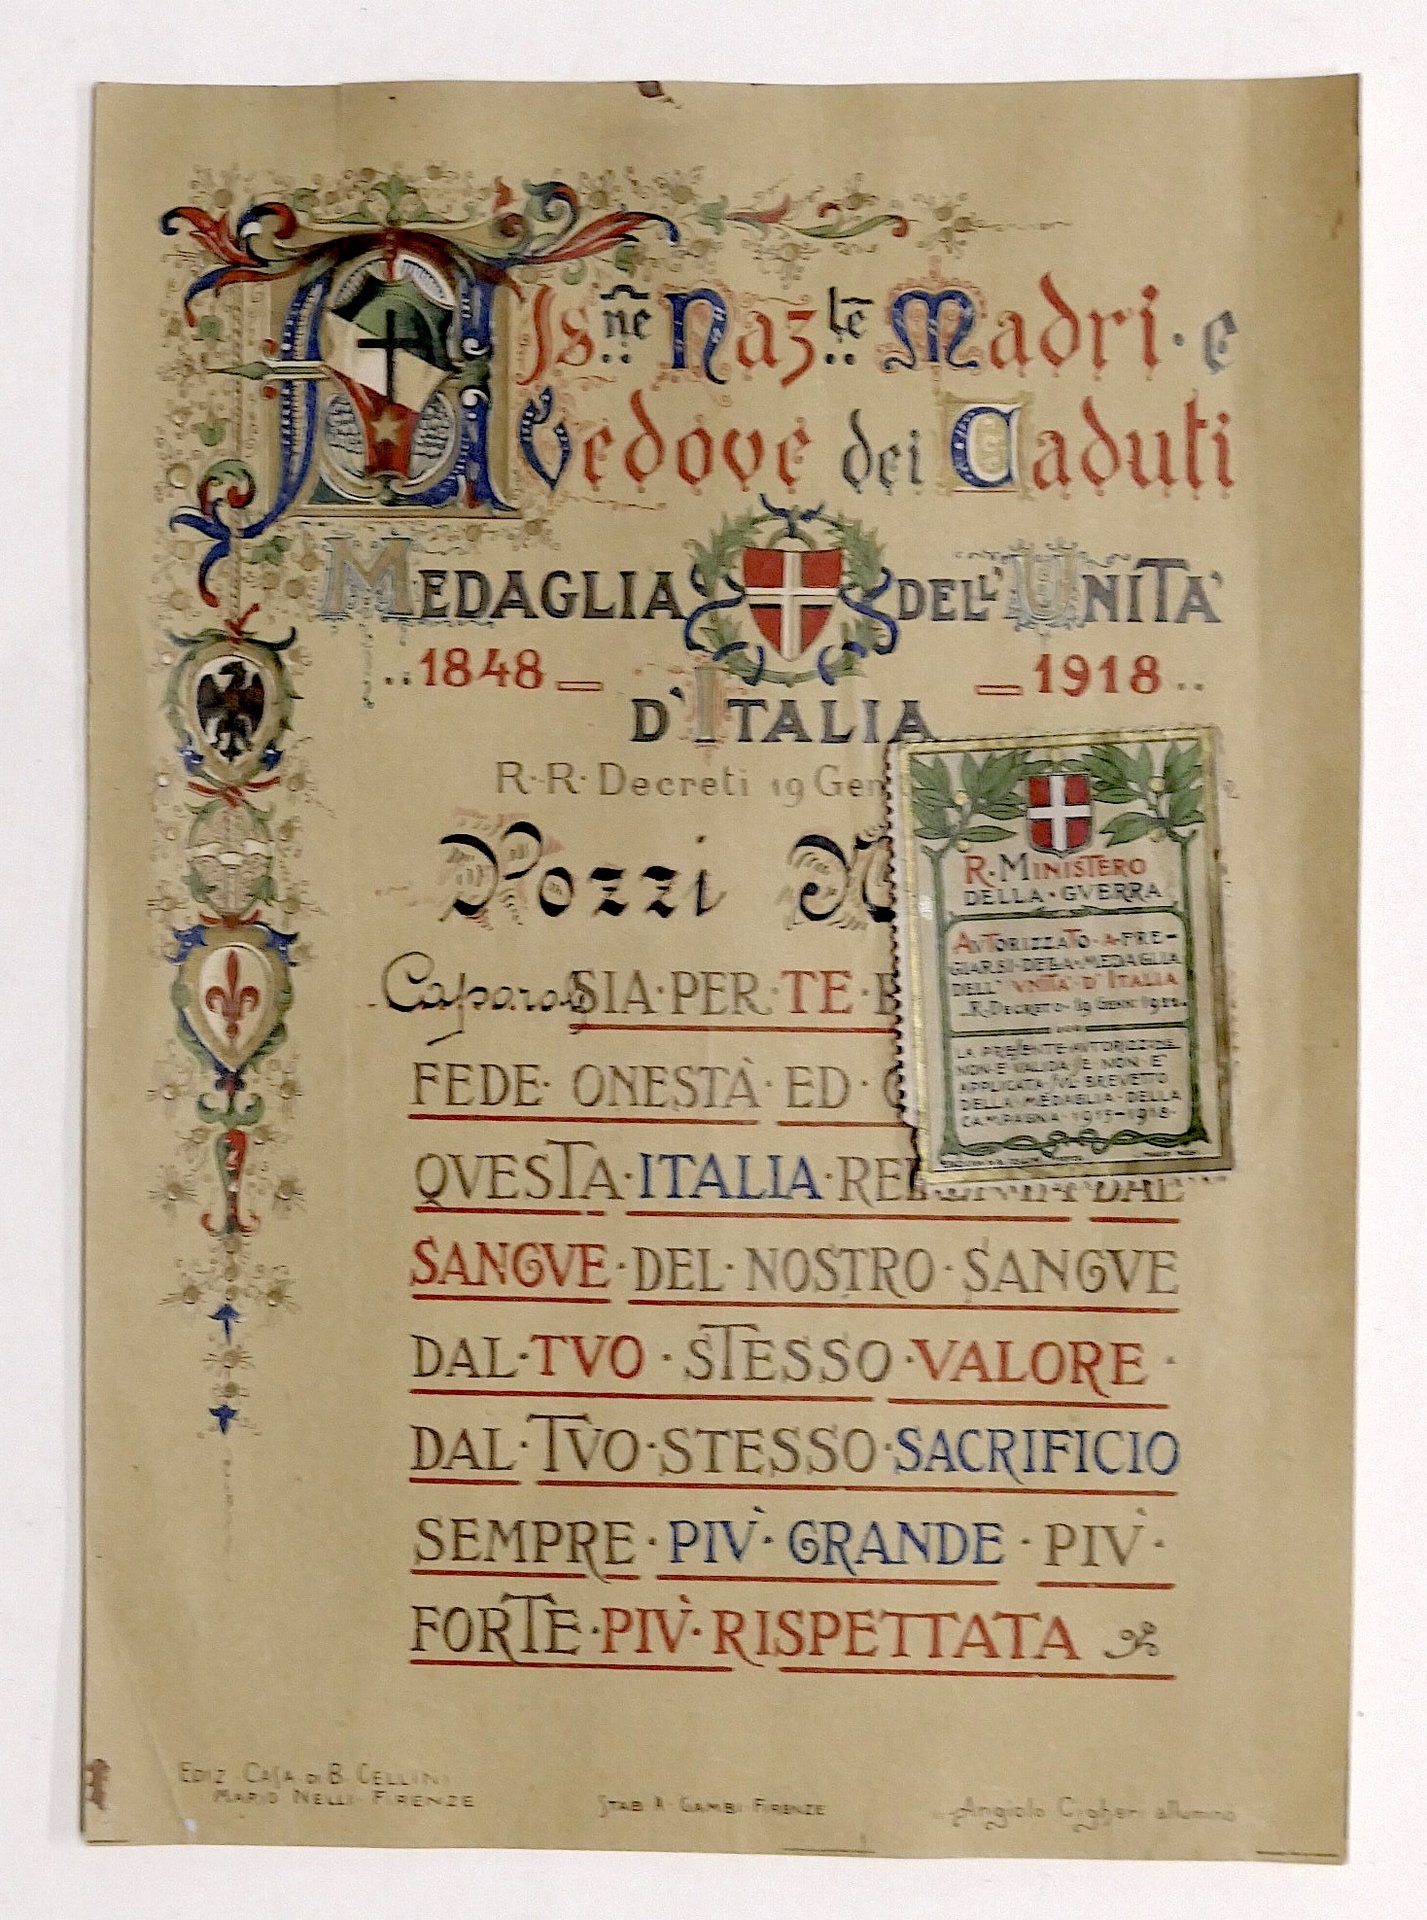 Assne Nazle Madri · e
Vedove dei Caduti
MEDAGLIA DELL' UNITA'
1848 _ _ 1918
D'ITALIA
R·R· Decreti 19 Gen
Pozzi
Caporale SIA·PER·TE·
FEDE· ONESTÀ·ED·
QVESTA·ITALIA·
SANGVE·DEL·NOSTRO·SANGVE
DAL·TVO·STESSO·VALORE·
DAL·TVO·STESSO·SACRIFICIO
SEMPRE·PIV̀·GRANDE·PIV̀·
FORTE·PIV̀·RISPETTATA
R·MINISTERO
DELLA·GVERRA
AVTORIZZATO·A·FRE–
GIARSI·DELLA·MEDAGLIA
DELL' VNITA' D'ITALIA
R·DECRETO· 19 GENN 1922·
LA PRESENTE AVTORIZZ·DEL
NON E' VALIDA SE NON E'
APPLICATA SVL BREVETTO
DELLA·MEDAGLIA·DELLA
CAMPAGNA·1915–1918·
EDIZ CASA DI B. CELLINI
MARIO NELLI· FIRENZE
STAB A· GAMBI·FIRENZE
Angiolo Cigheri alluminò